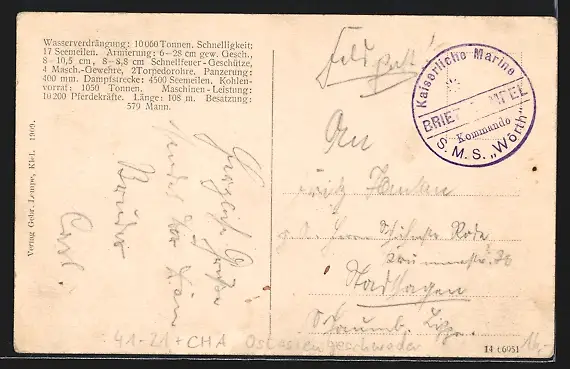 Wasserverdrängung: 10 060 Tonnen. Schnelligkeit:
17 Seemeilen. Armierung: 6–28 cm gew. Gesch.,
8–10,5 cm, 8–8,8 cm Schnellfeuer-Geschütze,
4 Masch.-Gewehre, 2 Torpedorohre. Panzerung:
400 mm. Dampfstrecke: 4500 Seemeilen. Kohlen-
vorrat: 1050 Tonnen. Maschinen-Leistung:
10 200 Pferdekräfte. Länge: 108 m. Besatzung:
579 Mann.
Verlag Gebr. Lempe, Kiel. 1909.
Herzliche Grüße
sendet Dir Dein
Bruder
Carl
Feldpost!
Kaiserliche Marine
BRIEFSTEMPEL
Kommando
S. M. S. „Wörth"
An
Fritz
Herrn Rode
Stadthagen
Schaumb. Lippe
41-21 + CHA Ostasiengeschwader
14 06951